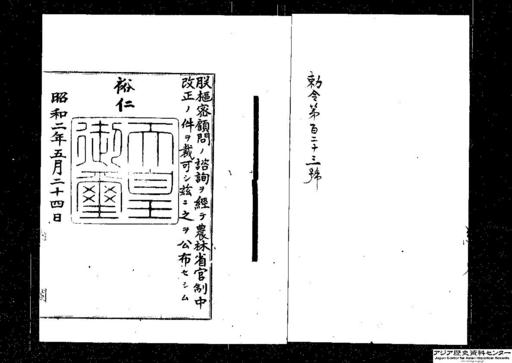 勅令第百二十三號
朕樞密顧問ノ諮詢ヲ經テ農林省官制中
改正ノ件ヲ裁可シ茲ニ之ヲ公布セシム
裕仁
天皇御璽
昭和二年五月二十四日
アジア歴史資料センター
Japan Center for Asian Historical Records